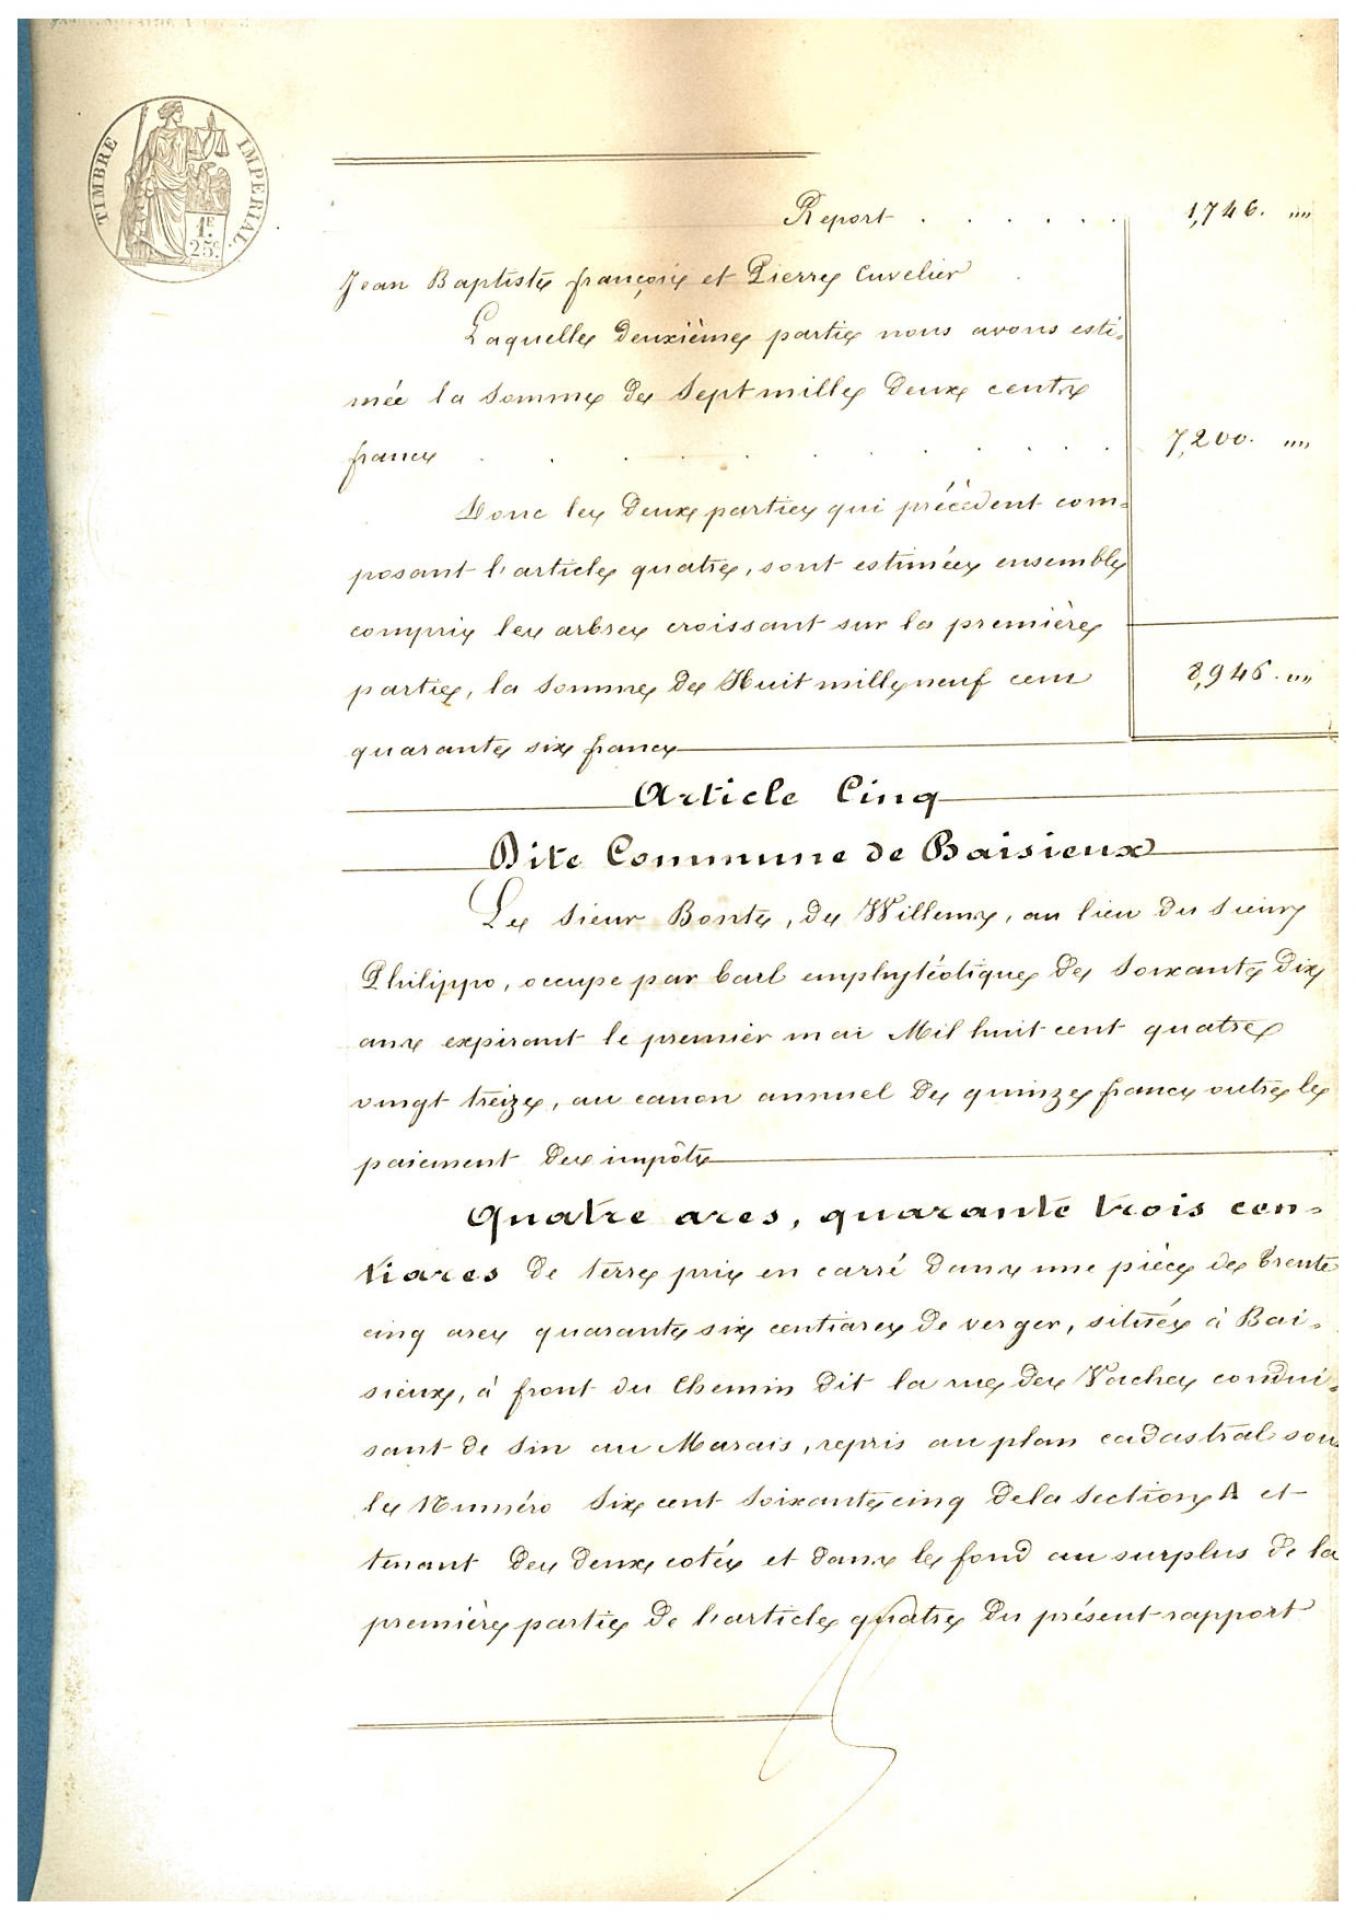 TIMBRE IMPERIAL.
1F.
25c.
Report . . . . . . 1,746. ""
Jean Baptiste françois et Pierre Cuvelier
Laquelle deuxième partie nous avons esti=
mée la somme de Sept mille deux cents
francs . . . . . . . . 7,200. ""
Donc les deux parties qui précèdent com=
posant l'article quatre, sont estimées ensemble
compris les arbres croissant sur la première
partie, la somme de Huit mille neuf cent 8,946. ""
quarante six francs
Article Cinq
Dite Commune de Baisieux
Le sieur Bonte, de Willems, au lieu du sieur
Philippo, occupe par bail emphytéotique de soixante dix
ans expirant le premier mai Mil huit cent quatre
vingt treize, au canon annuel de quinze francs outre le
paiement des impôts
Quatre ares, quarante trois cen=
tiares de terre pris en carré dans une pièce de trente
cinq ares quarante six centiares de verger, située à Bai=
sieux, à front du Chemin dit la rue des Vaches condui=
sant de Sin au Marais, repris au plan cadastral sous
le Numéro Six cent soixante cinq de la section A et
tenant des deux cotés et dans le fond au surplus de la
première partie de l'article quatre du présent rapport